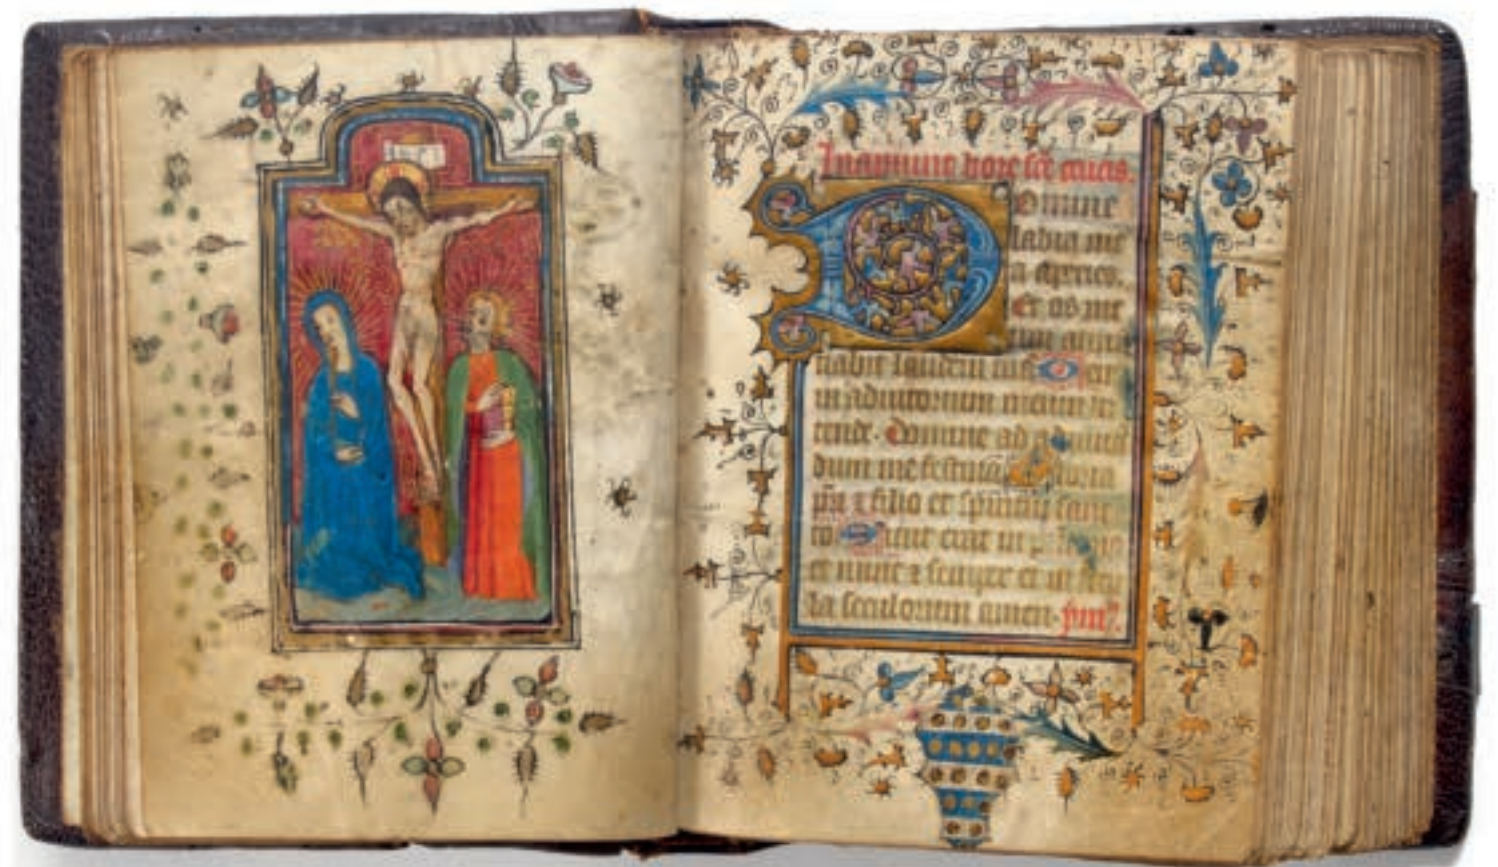 Incipiunt hore sce crucis.
Domine
labia me
a aperies.
Et os me
um annu
ciabit laudem tuā. De
in adiutorium meum in
tende. Domine ad adiuua
dum me festinā. Gloria
pri ⁊ filio et spiritui sanc
to Sicut erat in
et nunc ⁊ semper et in secu
la seculorum amen.